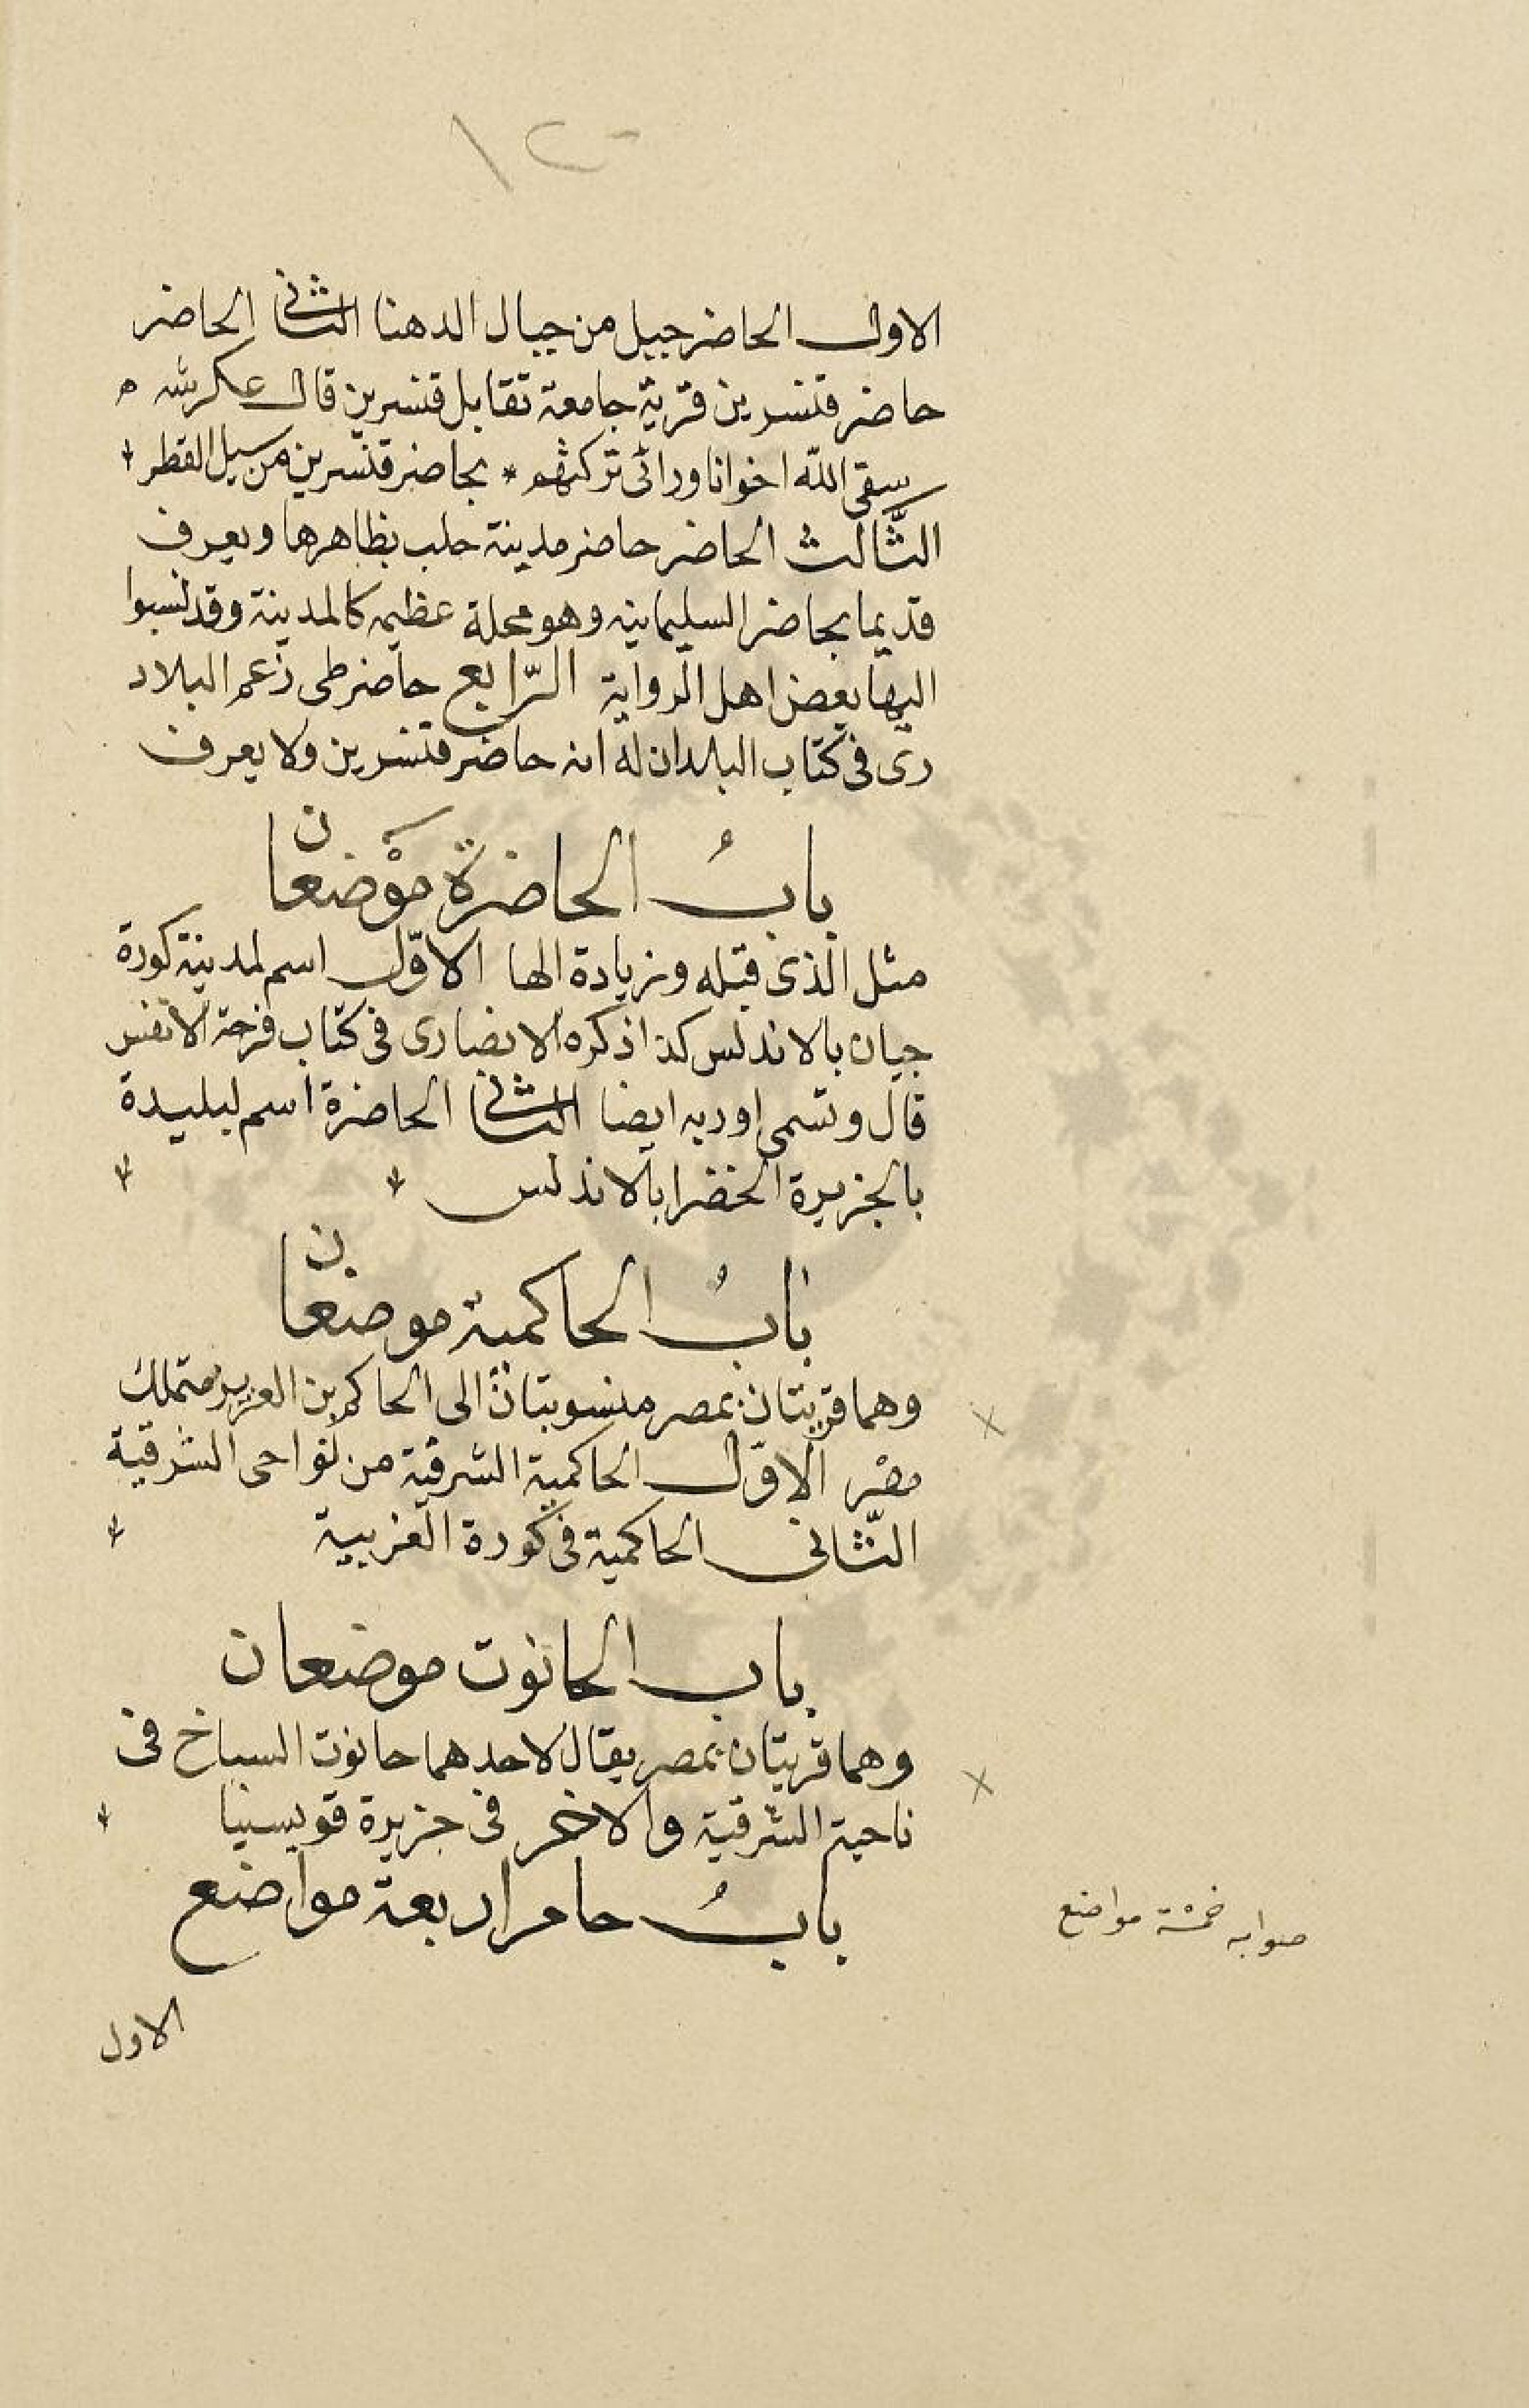 ١٢٠
الاول الحاضر جبيل من جبال الدهنا الثانى الحاضر
حاضر قنسرين قرية جامعة تقابل قنسرين قال عكرشه ه
سقى الله اخوانا ورائى تركتهم * بحاضر قنسرين من سبيل القطر
الثّالث الحاضر حاضر مدينة حلب بظاهرها ويعرف
قديما بحاضر السليمانيه وهو محلة عظيمه كالمدينة وقد نسبوا
اليها بعض اهل الرواية الرّابع حاضر طى زعم البلاد
رى فى كتاب البلدان له انه حاضر قنسرين ولا يعرف
بابُ الحاضرة موْضعان
مثل الذى قبله وزيادة الها الاوّل اسم لمدينة كورة
جيان بالاندلس كذا ذكره الانصارى فى كتاب فرحة الانفس
قال وتسمى اوربه ايضا الثانى الحاضرة اسم لبليدة
بالجزيرة الخضرا بالاندلس
بابُ الحاكمية موضعان
وهما قريتان بمصر منسوبتان الى الحاكم بن العزيز متملك
مصْر الاوّل الحاكمية الشرقية من نواحى الشرقية
الثّانى الحاكمية فى كورة الغربيية
باب الحانوت موضعان
وهما قريتان بمصر يقال لاحدهما حانوت السباخ فى
ناحية الشرقية والاخر فى جزيرة قويسنيا
بابُ حامر اربعة مواضع
صوابه خمسْة مواضع
الاول